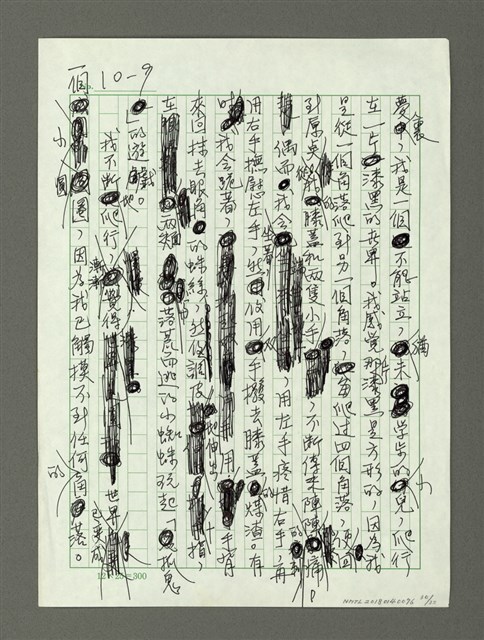 10-9
夢裏，我是一個不能站立，猶未學步的小兒，爬行
在一片漆黑的世界。我感覺那片漆黑是方形的，因為我
是從一個角落爬到另一個角落，爬過四個角落，
到原點。膝蓋和兩隻小手，不斷傳來陣陣的刺痛，
偶而，我會坐著，用左手疼惜右手，再
用右手撫慰左手，然後用手撥去膝蓋的煤渣。有
時我會跪著，用手背
來回抹去眼角的蜘蛛絲，然後調皮地伸出十指，
在兩頰落荒而逃的小蜘蛛玩起「捉鬼」
的遊戲。
我不斷地爬行，漸漸覺得世界已變成
一個小圓圈，因為我已觸摸不到任何的角落。
12×25=300